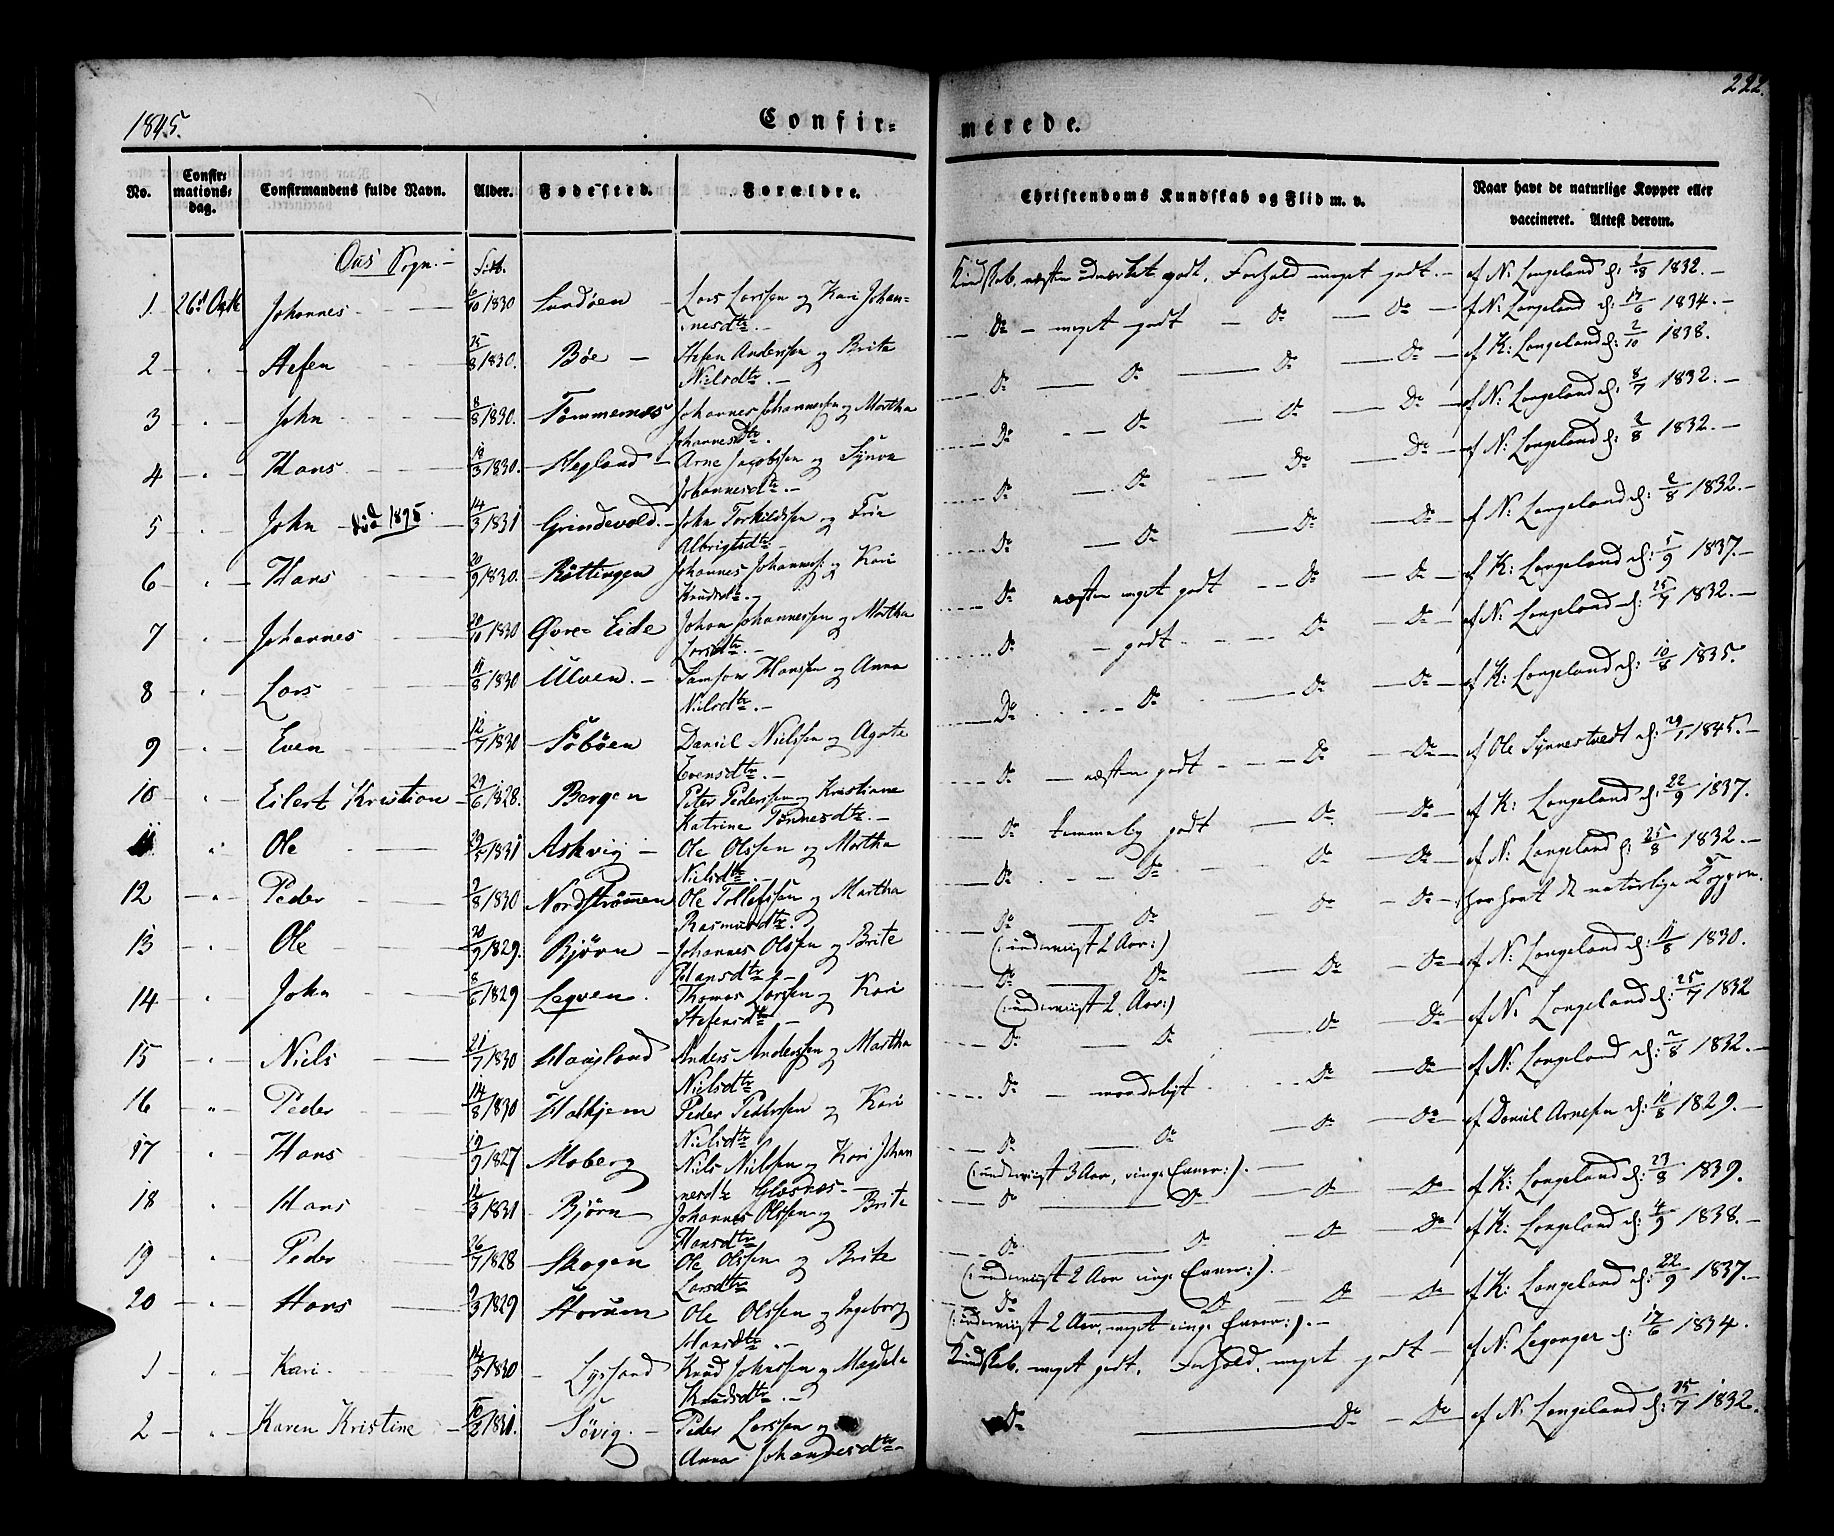 222.
1845.
Confir= merede.
No.
Confir=
mations=
dag.
Confirmandens fulde Navn.
Alder.
Fødested.
Forældre.
Christendoms Kundskab og Flid m. v.
Naar havt de naturlige Kopper eller
vaccineret. Attest derom.
Ous Sogn.
Kundskab, næsten udmærket godt. Forhold meget godt. af N: Langeland d: 1832.
1 26d Johannes 6/10 1830 Lars Larssen og Kari Johan=
nesdtr.
Do meget godt Do Do af N: Langeland d: 17/6 1834.
2 " Stefen 25/8 1830. Bøe Stefen Anderssen og Brite
Nielsdtr.
Do Do Do Do af K: Langeland d: 2/10 1838.
3 " John 8/8 1830. Tømmernæs Johannes Johannessen og Martha
Johannesdtr.
Do Do Do Do af N: Langeland d: 8/7 1832.
4 " Hans 18/3 1830. Hegland Arne Jacobssen og Synva
Johannesdtr.
Do Do Do Do af N: Langeland d: 2/8 1832.
5 " John død 1895. 14/3 1831 Grindevold John Torkildssen og
Albrigtsdtr.
Do Do Do Do af N: Langeland d: 2/8 1832.
6 " Hans 20/9 1830. Røttingen Johannes Johanness: og Kari
Knudsdtr.
Do næsten meget godt Do Do af K: Langeland d: 5/9 1837.
7 " Johannes 20/10 1830 Øvre Eide Johan Johannessen og Martha
Larsdtr.
Do godt Do Do af N: Langeland d: 25/7 1832.
8 " Lars 11/8 1830 Ulven. Samson Hanssen og Anna
Nilsdtr.
Do Do Do Do af K: Langeland d: 10/8 1835.
9 " Even 12/7 1830 Søbøen Daniel Nielssen og Agate
Evensdtr.
Do næsten godt Do Do af Ole Synnestvedt d: 29/1 1845.
10 " Eilert Kristian 29/6 1828. Bergen Peter Pederssen og Kristiane
Katrine Tønnesdtr.
Do temmelig godt Do Do af K: Langeland d: 22/9 1837.
11 " Ole 29/5 1831 Askvig Ole Olssen og Martha
Nielsdtr.
Do Do Do Do af N: Langeland d: 25/8 1832.
12 " Peder 9/8 1830 Nordstrømen Ole Tollefssen og Martha
Rasmusdtr.
Do Do Do Do har havt de naturlige Kopper.
13 " Ole 20/9 1829. Bjørn Johannes Olssen og Brite
Hansdtr.
(: underviist 2 Aar :)
Do Do Do Do af N: Langeland d: 11/8 1830.
14 " John 8/6 1829 Leqven. Thomas Larssen og Kari
Stefensdtr.
(: underviist 2 Aar :)
Do Do Do Do af N: Langeland d: 25/7 1832
15 " Niels 21/7 1830 Haugland Anders Anderssen og Martha
Nielsdtr.
Do maadeligt Do Do af N: Langeland d: 2/8 1832.
16 " Peder 14/8 1830 Halhjem Peder Pederssen og Kari
Nielsdtr.
Do Do Do Do af Daniel Arnesen d: 11/8 1829.
17 " Hans 19/9 1827 Moberg Niels Nielssen og Kari Johan
nesdtr
(: underviist 3 Aar, ringe Evner :).
Do Do Do Do af K: Langeland d: 23/8 1839.
18 " Hans 12/3 1831 Bjørn Johannes Olssen og Brite
Hansdtr.
Do Do Do Do af K: Langeland d: 4/9 1838.
19 " Peder 26/7 1828 Skogen Ole Olssen og Brite
Larsdtr
(: underviist 2 Aar ringe Evner :).
Do Do Do Do af K: Langeland d: 22/9 1837.
20 " Hans 2/3 1829 Storum Ole Olssen og Ingeborg
Hansdtr.
(: underviist 2 Aar, meget ringe Evner :).
1 " Kari 14/5 1830 Lyssand Knud Johnssen og Magdela
Knudsdtr.
Kundskab, meget godt. Forhold, meget godt af N: Leganger d: 17/6 1834.
2 " Karen Kristine 10/2 1831. Søvig. Peder Larssen og
Anna Johannesdtr
Do Do Do af N: Langeland d: 25/7 1832.